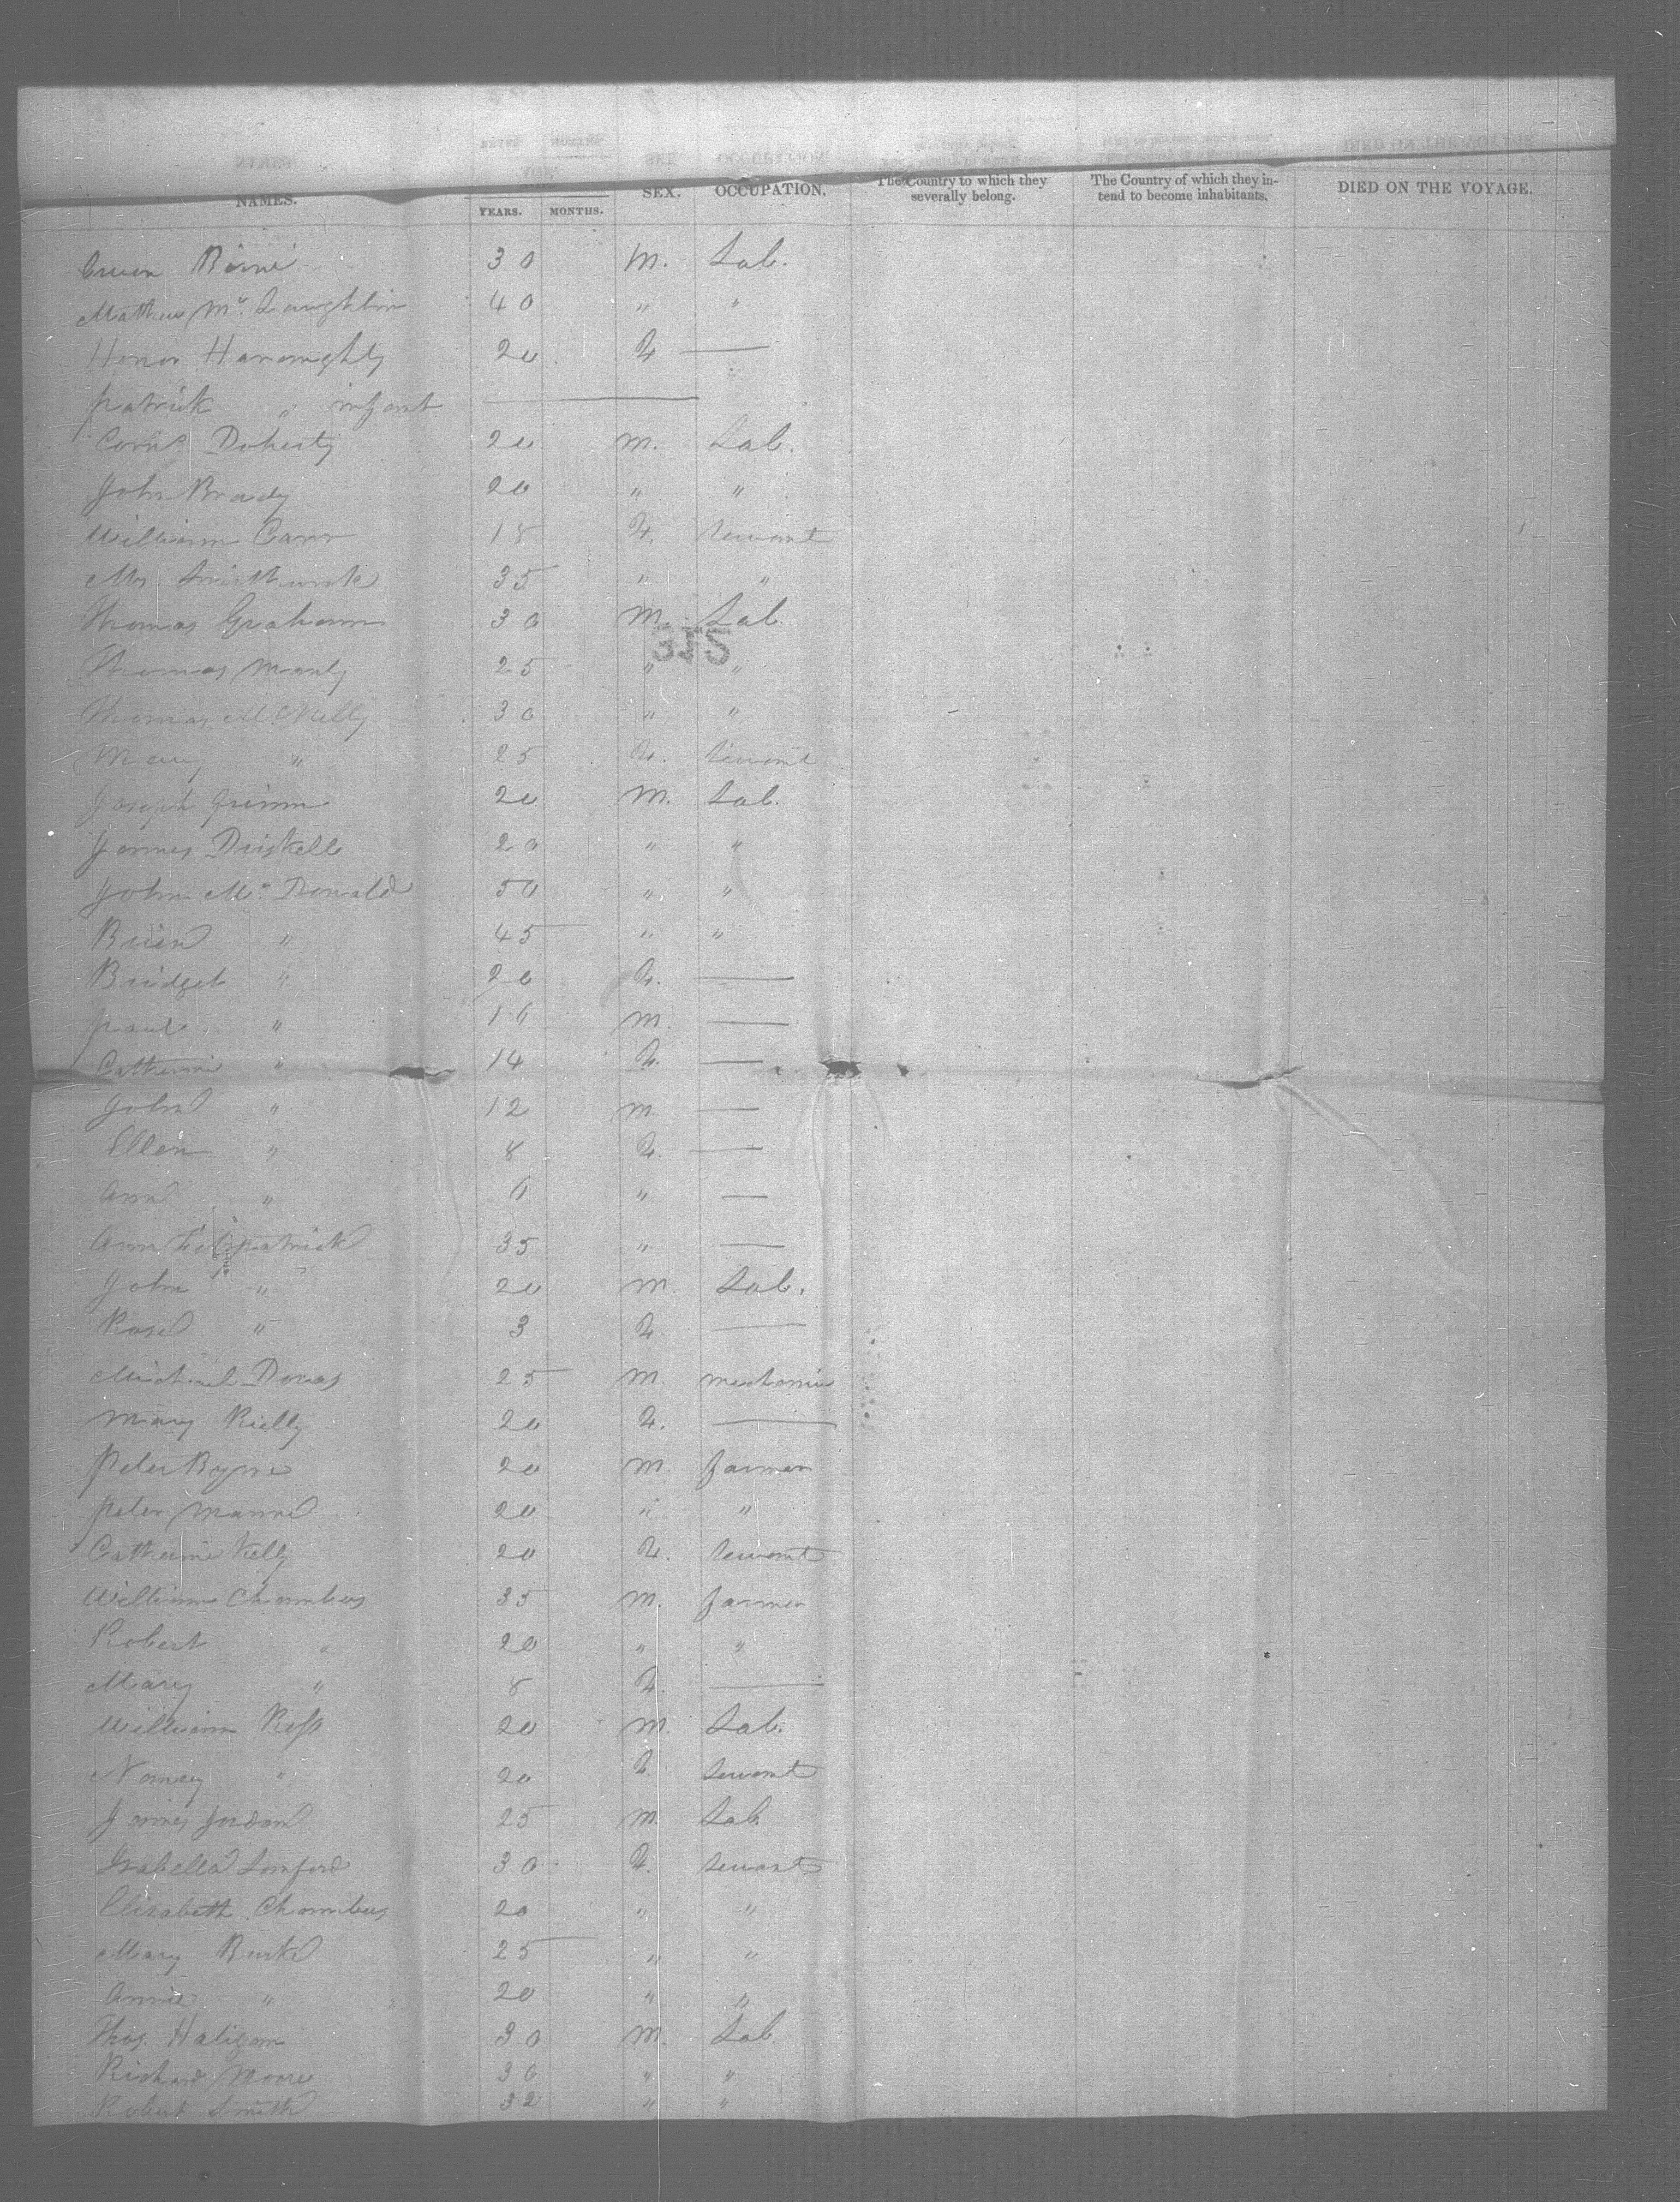 NAMES. YEARS. MONTHS. SEX. OCCUPATION. The Country to which they severally belong. The Country of which they intend to become inhabitants. DIED ON THE VOYAGE.
30 M. Lab.
Mathew Mc Laughlin 40 " "
Honor Hanoughty 20 F. —
Patrick " infant —
Corns Doherty 20 M. Lab.
John Brady 20 " "
William Carr 18 F. servant
Mrs 35 " "
Thomas Graham 30 M. Lab.
315
Thomas Manly 25 " "
Thomas McNielly 30 " "
Mary " 25 F. servant
Joseph Grimm 20 M. Lab.
James Driskell 20 " "
John Mc Donald 50 " "
Brien " 45 " "
Bridget " 20 F. —
Paul " 16 M. —
Catherine " 14 F. —
John " 12 M —
Ellen " 8 F. —
Ann " 6 " —
Ann Fitzpatrick 35 " —
John " 20 M Lab.
Rose " 3 F. —
Michael 25 M. mechanic
Mary Rielly 20 F. —
Peter Boyne 20 M farmer
Peter 20 " "
Catherine Kelly 20 F. servant
William Chambers 35 M. farmer
Robert " 20 " "
Mary " 8 F. —
William Ross 20 M. Lab.
Nancy " 20 F. servant
James Jordan 25 M. Lab.
Isabella 30 F. servant
Elizabeth Chambers 20 " "
Mary Burke 25 " "
Annie " 20 " "
Thos. Haligan 30 M. Lab.
Richard Moore 30 " "
Robert Smith 32 " "